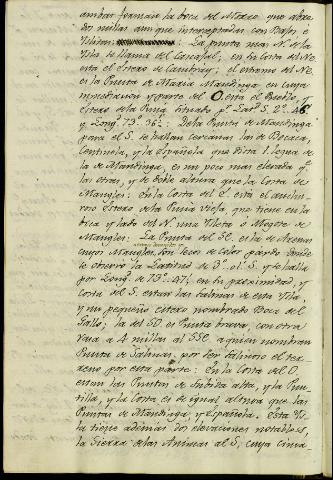 ambas forman la boca del Morro, que abra-
dos millas aunque interceptadas con Bajos e
Isletas: La punta mas N. de la
Isla se llama del Cascajal, en la Costa del No.
esta el Estero de Cambray; el estremo del Ne.
es la Punta de Maria Mandinga en cuya
inmediacion y parte del O. esta el Pueblo, y
Estero de la Puna situado por Latd. S. 2º 48'
y Long. 73º 36': De la Punta de Mandinga
para el S. se hallan cercanas las de Becaca
Centinela, y la Española que dista 1. legua de
la de Mandinga, es un poco mas elevada qe.
las otras, y de doble altura que la Costa de
Mangles: En la Costa del E. esta el anchu-
roso Estero de la Puná Vieja, que tiene en la
boca y lado del N. una Isleta ó Mogote de
Mangles: La Punta del SE. es la de Arenas
cuyo Manglar, son seco de color pardo donde
se observo la Latitud de 3º al S. y se halla
por Long. de 73º 27', en su proximidad, y
Costa del S. estan las Salinas de esta Ysla,
y un pequeño estero nombrado Boca del
Gallo; la del SO. es Punta brava, con otra
rasa á 4 millas al SSE. a quien nombran
Punta de Salinas, por ser salinoso el ter-
reno por esta parte: En la Costa del O.
estan las Puntas de Subida alta, y la Pun-
tilla, y la Costa es de igual altura que las
Puntas de Mandinga y Española. Esta Ys-
la tiene ademas dos elevaciones notables,
la Sierra de las Animas al S, cuya cima